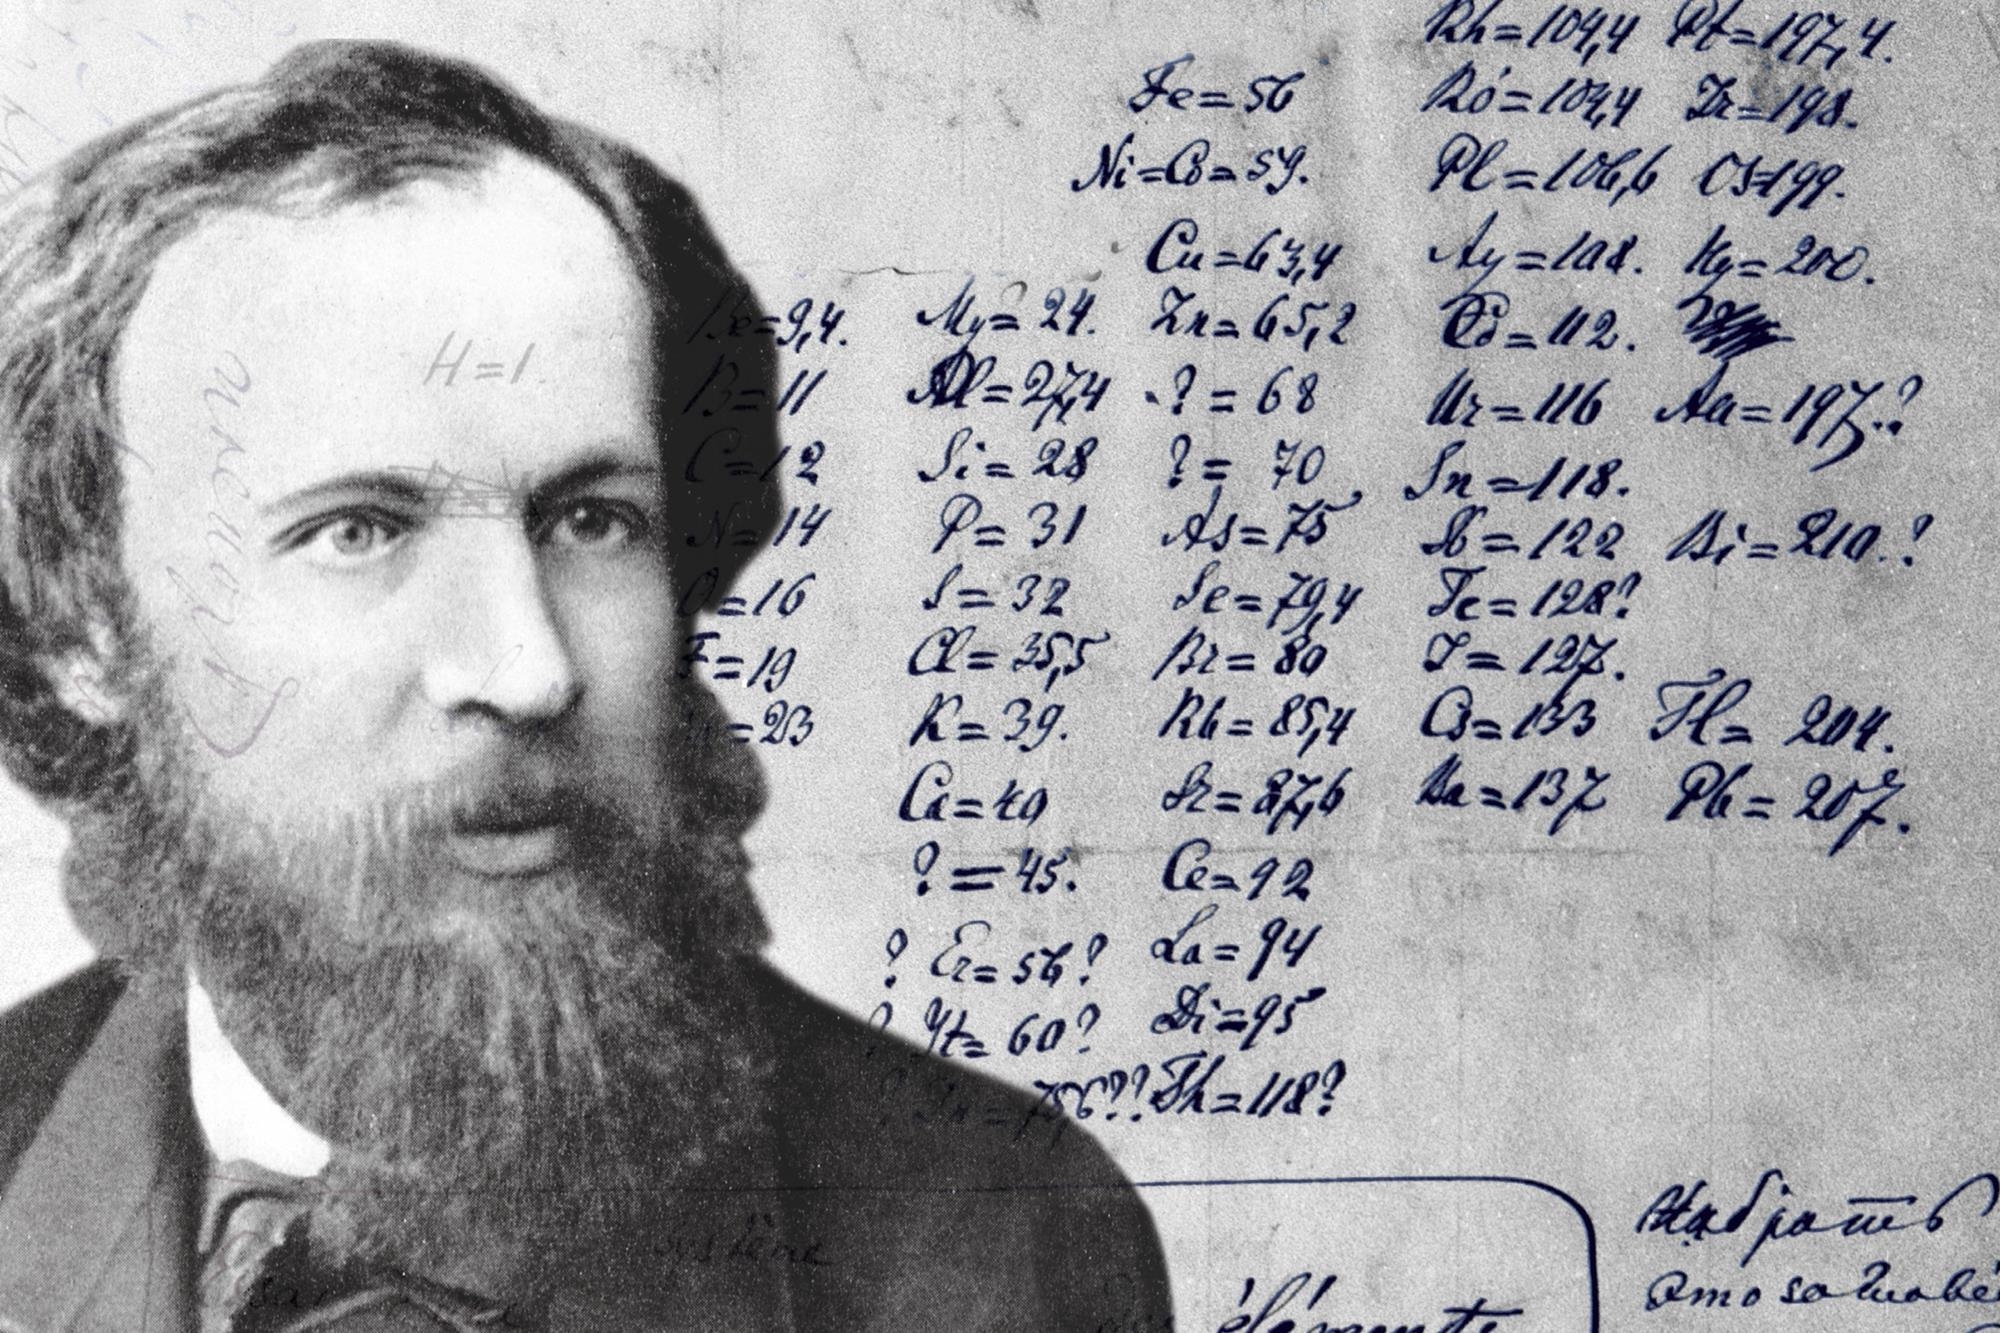 Rh=104,4 Pt=197,4.
Fe=56 Ró=104,4 Ir=198.
Ni=Co=59. Pl=106,6 Os=199.
Cu=63,4 Ag=108. Hg=200.
H=1. Be=9,4. Mg=24. Zn=65,2 Cd=112.
B=11 Al=27,4 ?=68 Ur=116 Au=197.?
C=12 Si=28 ?=70 Sn=118.
N=14 P=31 As=75 Sb=122 Bi=210.?
O=16 S=32 Se=79,4 Te=128?
F=19 Cl=35,5 Br=80 I=127.
=23 K=39. Rb=85,4 Cs=133 Tl=204.
Ca=40 Sr=87,6 Ba=137 Pb=207.
?=45. Ce=92
? Er=56? La=94
? Yt=60? Di=95
? In=75,6?? Th=118?
système
éléments